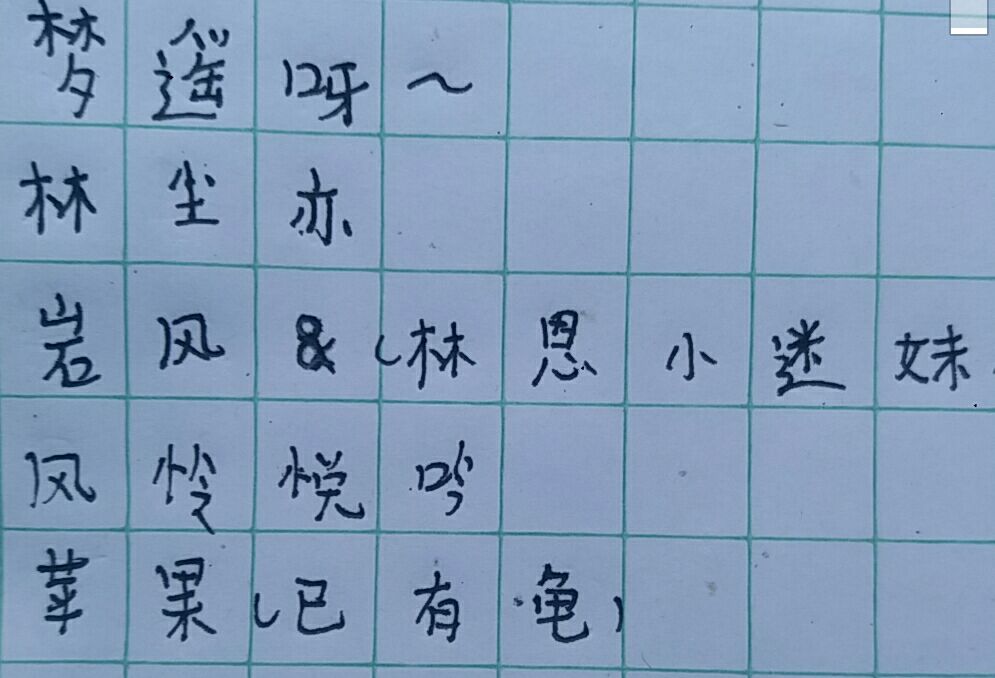 梦遥呀～
林尘亦
岩风&(林恩小迷妹
风怜悦吟
苹果(已有龟)